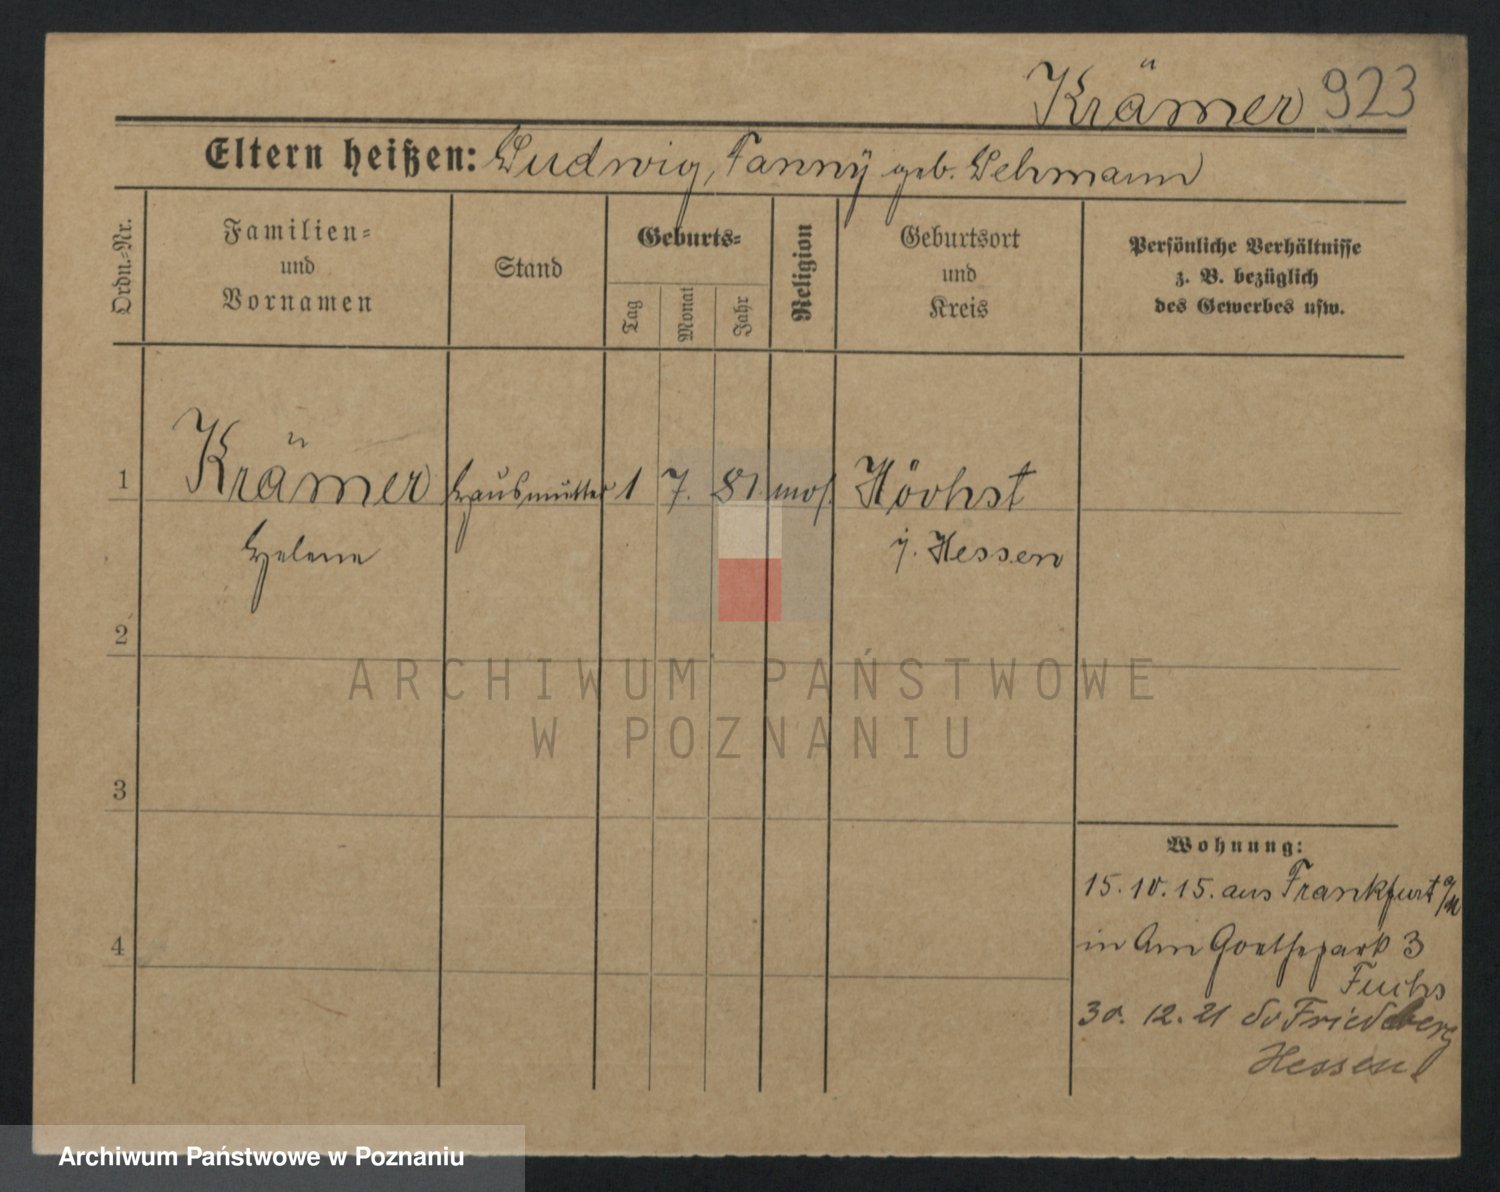 Krämer 923
Eltern heißen: Ludwig, Fanny geb. Lehmann
Ordn.-Nr.
Familien-
und
Vornamen
Stand
Geburts-
Tag
Monat
Jahr
Religion
Geburtsort
und
Kreis
Persönliche Verhältnisse
z. B. bezüglich
des Gewerbes usw.
1 Krämer Hausmutter 1 7. 81. mos. Höchst
Helene i. Hessen
2
ARCHIWUM PAŃSTWOWE
W POZNANIU
3
Wohnung:
15. 10. 15. aus Frankfurt a/M
in Am Goethepark 3
4
Fuchs
30. 12. 21 Friedberg
Hessen
Archiwum Państwowe w Poznaniu